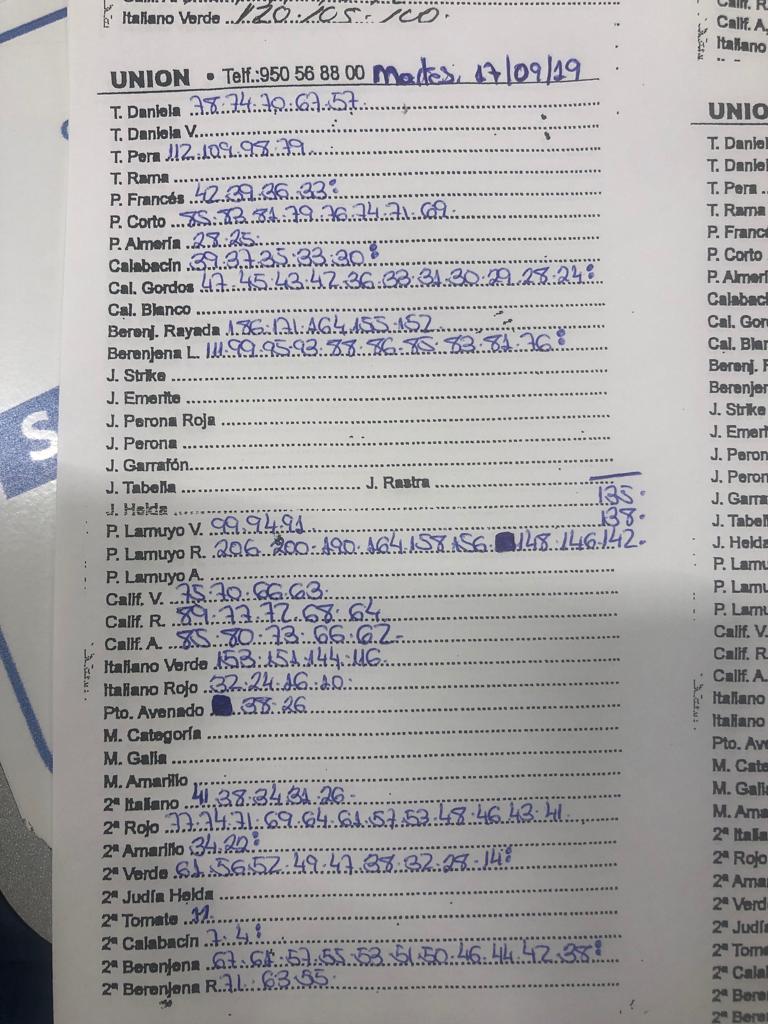 Italiano Verde 120.105.100.
UNION • Telf.:950 56 88 00 Martes, 17/09/19
T. Daniela 78.74.70.67.57
T. Daniela V.
T. Pera 112.109.98.79
T. Rama
P. Francés 42.39.36.33:
P. Corto 85.83.81.79.76.74.71.69.
P. Almería 28.25.
Calabacín 39.37.35.33.30:
Cal. Gordos 47.45.43.42.36.33.31.30.29.28.24:
Cal. Blanco
Berenj. Rayada 186.171.164.155.152
Berenjena L. 111.99.95.93.88.86.85.83.81.76:
J. Strike
J. Emerite
J. Perona Roja
J. Perona
J. Garrafón
J. Tabella J. Rastra
J. Helda 135.
P. Lamuyo V. 99.94.91 138.
P. Lamuyo R. 206.200.190.164.158.156. 148.146.142.
P. Lamuyo A.
Calif. V. 75.70.66.63.
Calif. R. 89.77.72.68.64
Calif. A. 85.80.73.66.62.
Italiano Verde 153.151.144.116
Italiano Rojo 32.24.16.10.
Pto. Avenado .38.26
M. Categoría
M. Galia
M. Amarillo
2ª Italiano 41.38.34.31.26.
2ª Rojo 77.74.71.69.64.61.57.53.48.46.43.41.
2ª Amarillo 34.22:
2ª Verde 61.56.52.49.47.38.32.28.14:
2ª Judía Helda
2ª Tomate 11.
2ª Calabacín 7.4:
2ª Berenjena 67.61.57.55.53.51.50.46.44.42.38:
2ª Berenjena R. 71.63.55.
UNIO
T. Daniel
T. Daniel
T. Pera
T. Rama
P. Francé
P. Corto
P. Almerí
Calabací
Cal. Gor
Cal. Blar
Berenj. F
Berenjer
J. Strike
J. Emeri
J. Peron
J. Peron
J. Garra
J. Tabel
J. Helda
P. Lamu
P. Lamu
P. Lamu
Calif. V.
Calif. R.
Calif. A.
Italiano
Italiano
Pto. Ave
M. Cate
M. Gali
M. Ama
2ª Italia
2ª Rojo
2ª Amar
2ª Verd
2ª Judí
2ª Tom
2ª Cala
2ª Bere
2ª Bere